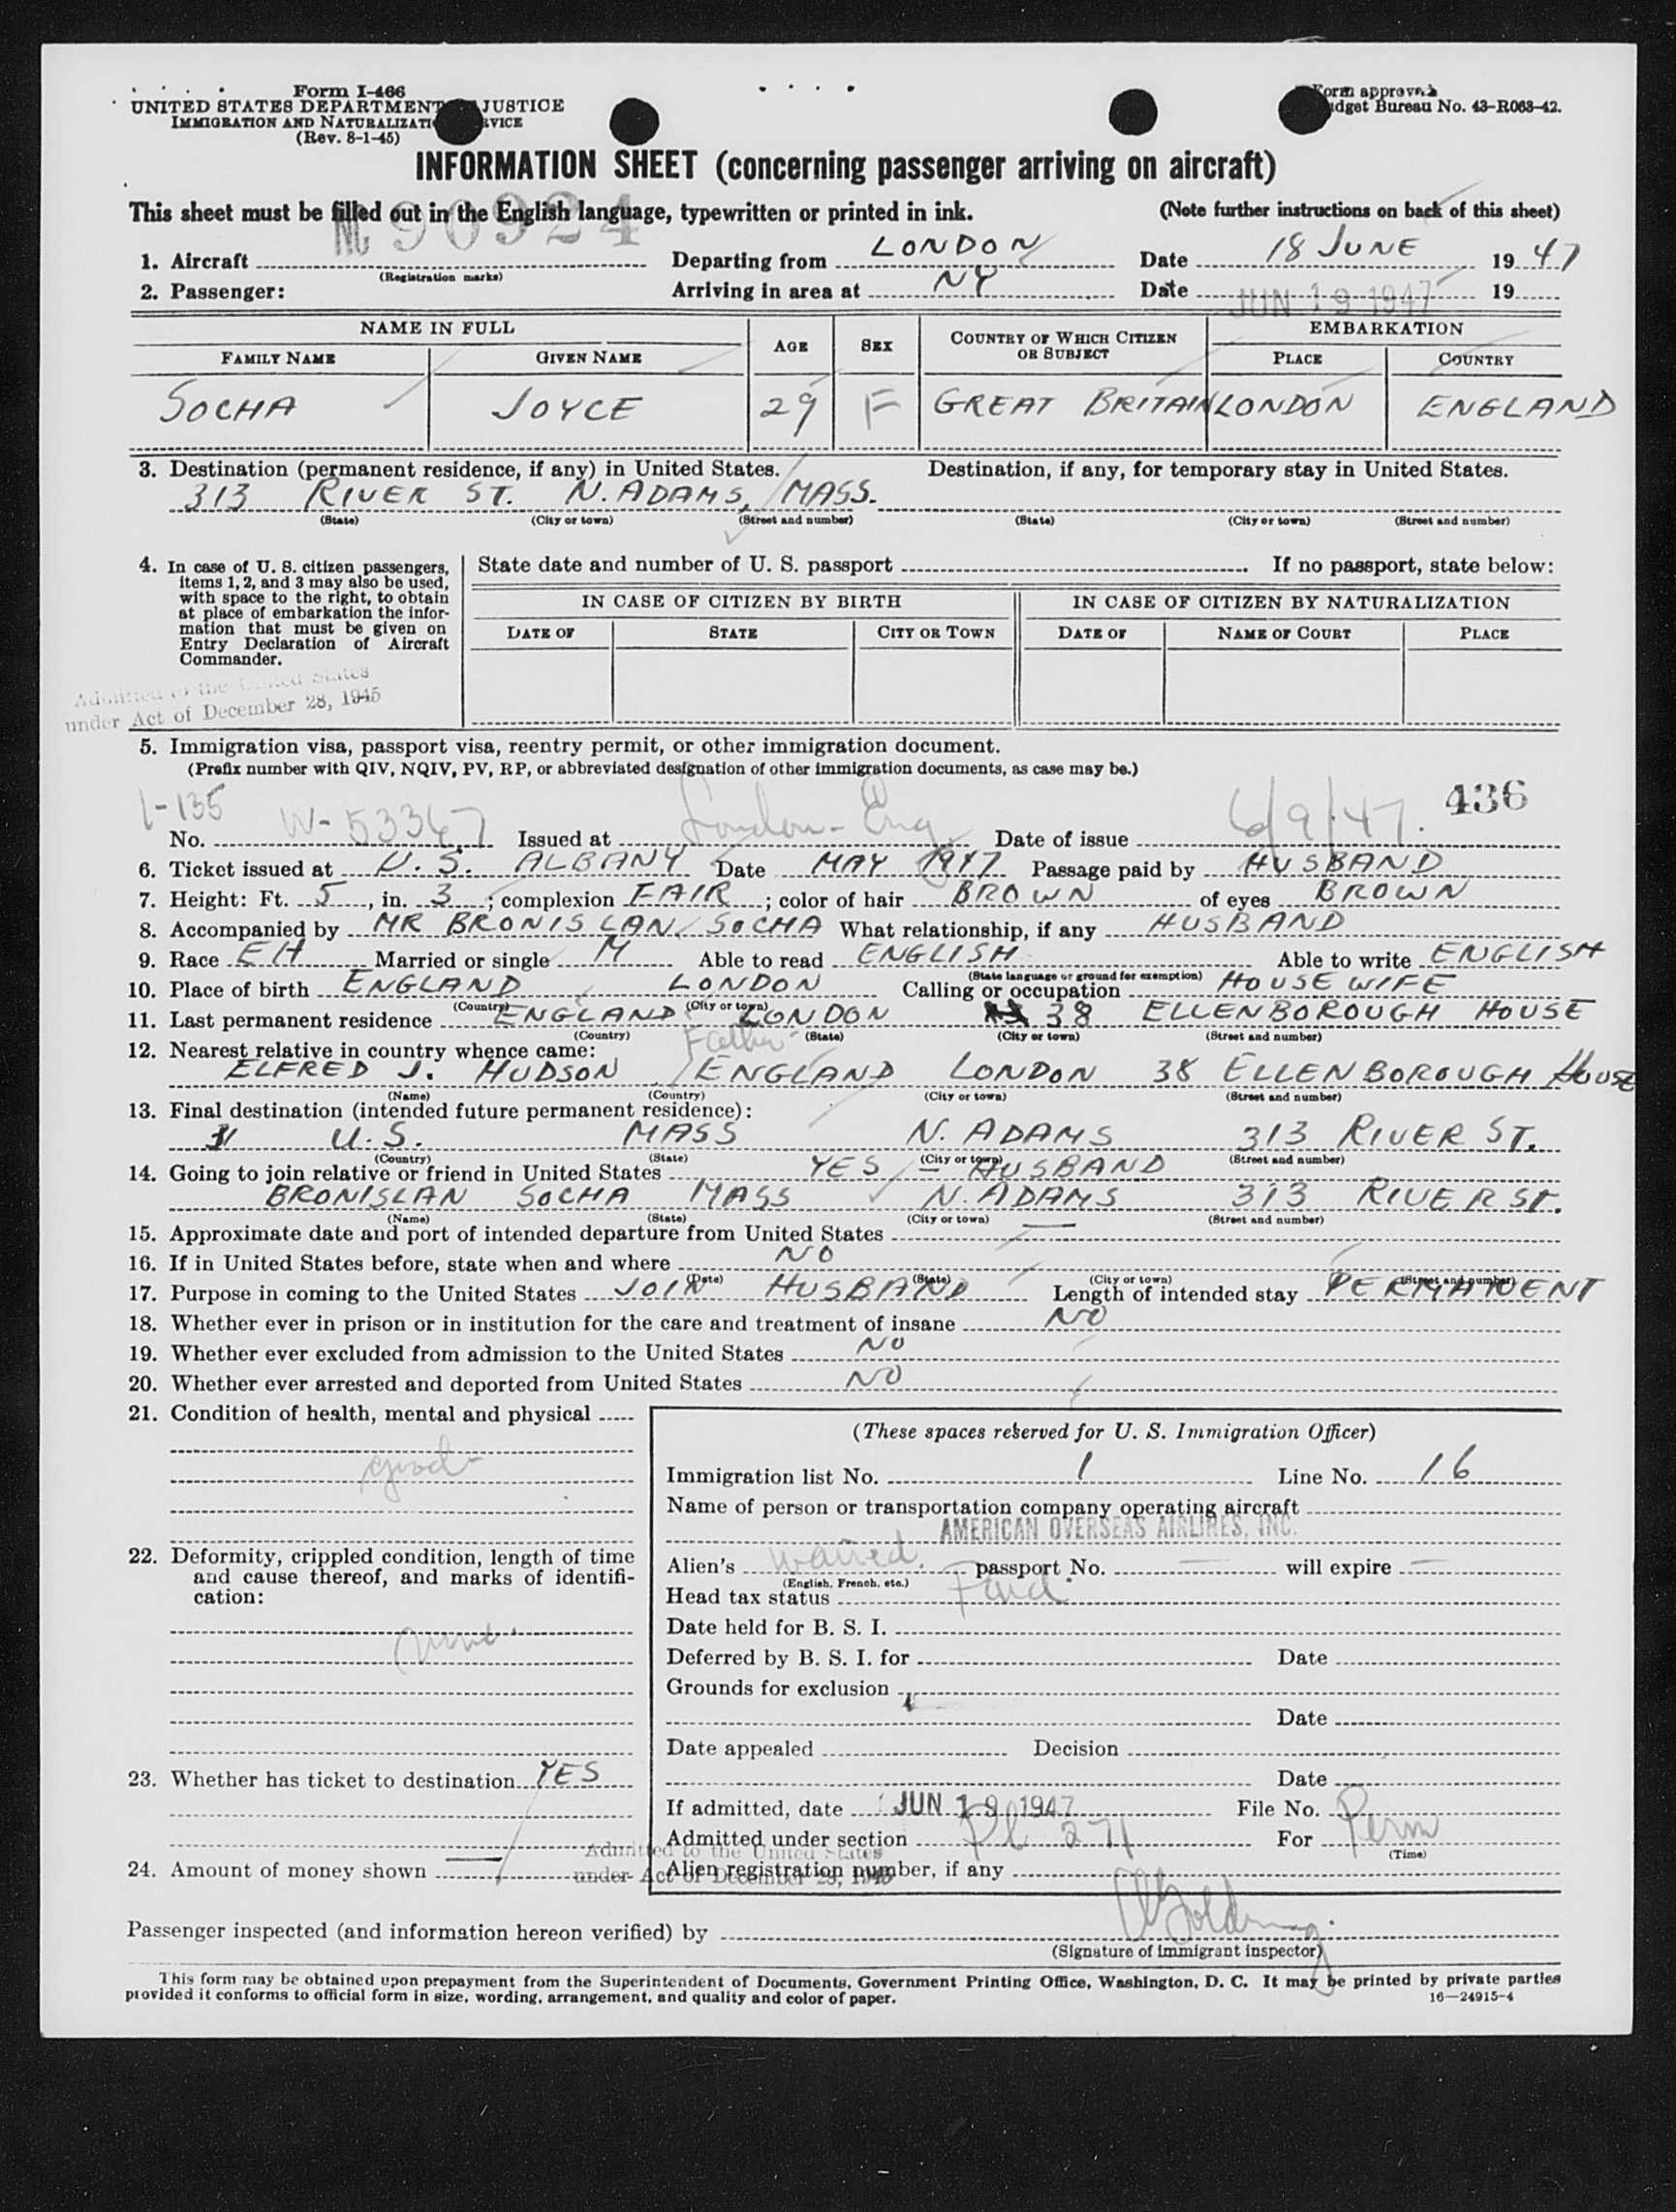 Form I-466
UNITED STATES DEPARTMENT JUSTICE
IMMIGRATION AND NATURALIZATI VICE
(Rev. 8-1-45)
Form approved
dget Bureau No. 43-R063-42.
INFORMATION SHEET (concerning passenger arriving on aircraft)
This sheet must be filled out in the English language, typewritten or printed in ink. (Note further instructions on back of this sheet)
NC 90924
1. Aircraft (Registration marks) Departing from LONDON Date 18 JUNE 1947
2. Passenger: Arriving in area at NY Date JUN 19 1947 19
NAME IN FULL AGE SEX COUNTRY OF WHICH CITIZEN OR SUBJECT EMBARKATION
FAMILY NAME GIVEN NAME PLACE COUNTRY
SOCHA JOYCE 29 F GREAT BRITAIN LONDON ENGLAND
3. Destination (permanent residence, if any) in United States. Destination, if any, for temporary stay in United States.
313 RIVER ST. N. ADAMS, MASS.
(State) (City or town) (Street and number) (State) (City or town) (Street and number)
4. In case of U. S. citizen passengers, items 1, 2, and 3 may also be used, with space to the right, to obtain at place of embarkation the information that must be given on Entry Declaration of Aircraft Commander.
State date and number of U. S. passport . If no passport, state below:
IN CASE OF CITIZEN BY BIRTH IN CASE OF CITIZEN BY NATURALIZATION
DATE OF STATE CITY OR TOWN DATE OF NAME OF COURT PLACE
Admitted to the United States
under Act of December 28, 1945
5. Immigration visa, passport visa, reentry permit, or other immigration document.
(Prefix number with QIV, NQIV, PV, RP, or abbreviated designation of other immigration documents, as case may be.)
I-135 436
No. W-53367 Issued at London-Eng. Date of issue 6/9/47.
6. Ticket issued at U.S. ALBANY Date MAY 1947 Passage paid by HUSBAND
7. Height: Ft. 5, in. 3; complexion FAIR; color of hair BROWN of eyes BROWN
8. Accompanied by MR BRONISLAN SOCHA What relationship, if any HUSBAND
9. Race EH Married or single M Able to read ENGLISH Able to write ENGLISH
(State language or ground for exemption)
10. Place of birth ENGLAND LONDON Calling or occupation HOUSE WIFE
(Country) (City or town)
11. Last permanent residence ENGLAND LONDON 38 ELLENBOROUGH HOUSE
(Country) (State) (City or town) (Street and number)
12. Nearest relative in country whence came: Father
ELFRED J. HUDSON ENGLAND LONDON 38 ELLENBOROUGH HOUSE
(Name) (Country) (City or town) (Street and number)
13. Final destination (intended future permanent residence):
U.S. MASS N. ADAMS 313 RIVER ST.
(Country) (State) (City or town) (Street and number)
14. Going to join relative or friend in United States YES - HUSBAND
BRONISLAN SOCHA MASS N. ADAMS 313 RIVER ST.
(Name) (State) (City or town) (Street and number)
15. Approximate date and port of intended departure from United States —
16. If in United States before, state when and where NO
(Date) (State) (City or town) (Street and number)
17. Purpose in coming to the United States JOIN HUSBAND Length of intended stay PERMANENT
18. Whether ever in prison or in institution for the care and treatment of insane NO
19. Whether ever excluded from admission to the United States NO
20. Whether ever arrested and deported from United States NO
21. Condition of health, mental and physical
good
22. Deformity, crippled condition, length of time and cause thereof, and marks of identification:
none.
23. Whether has ticket to destination YES
24. Amount of money shown —
(These spaces reserved for U. S. Immigration Officer)
Immigration list No. 1 Line No. 16
Name of person or transportation company operating aircraft
AMERICAN OVERSEAS AIRLINES, INC.
Alien's waived. passport No. — will expire —
(English, French, etc.)
Head tax status Paid.
Date held for B. S. I.
Deferred by B. S. I. for Date
Grounds for exclusion
Date
Date appealed Decision
Date
If admitted, date JUN 19 1947 File No.
Admitted under section PL 271 For Perm
(Time)
Admitted to the United States
under Act of December 28, 1945
Alien registration number, if any
Passenger inspected (and information hereon verified) by
(Signature of immigrant inspector)
This form may be obtained upon prepayment from the Superintendent of Documents, Government Printing Office, Washington, D. C. It may be printed by private parties
provided it conforms to official form in size, wording, arrangement, and quality and color of paper. 16—24915-4